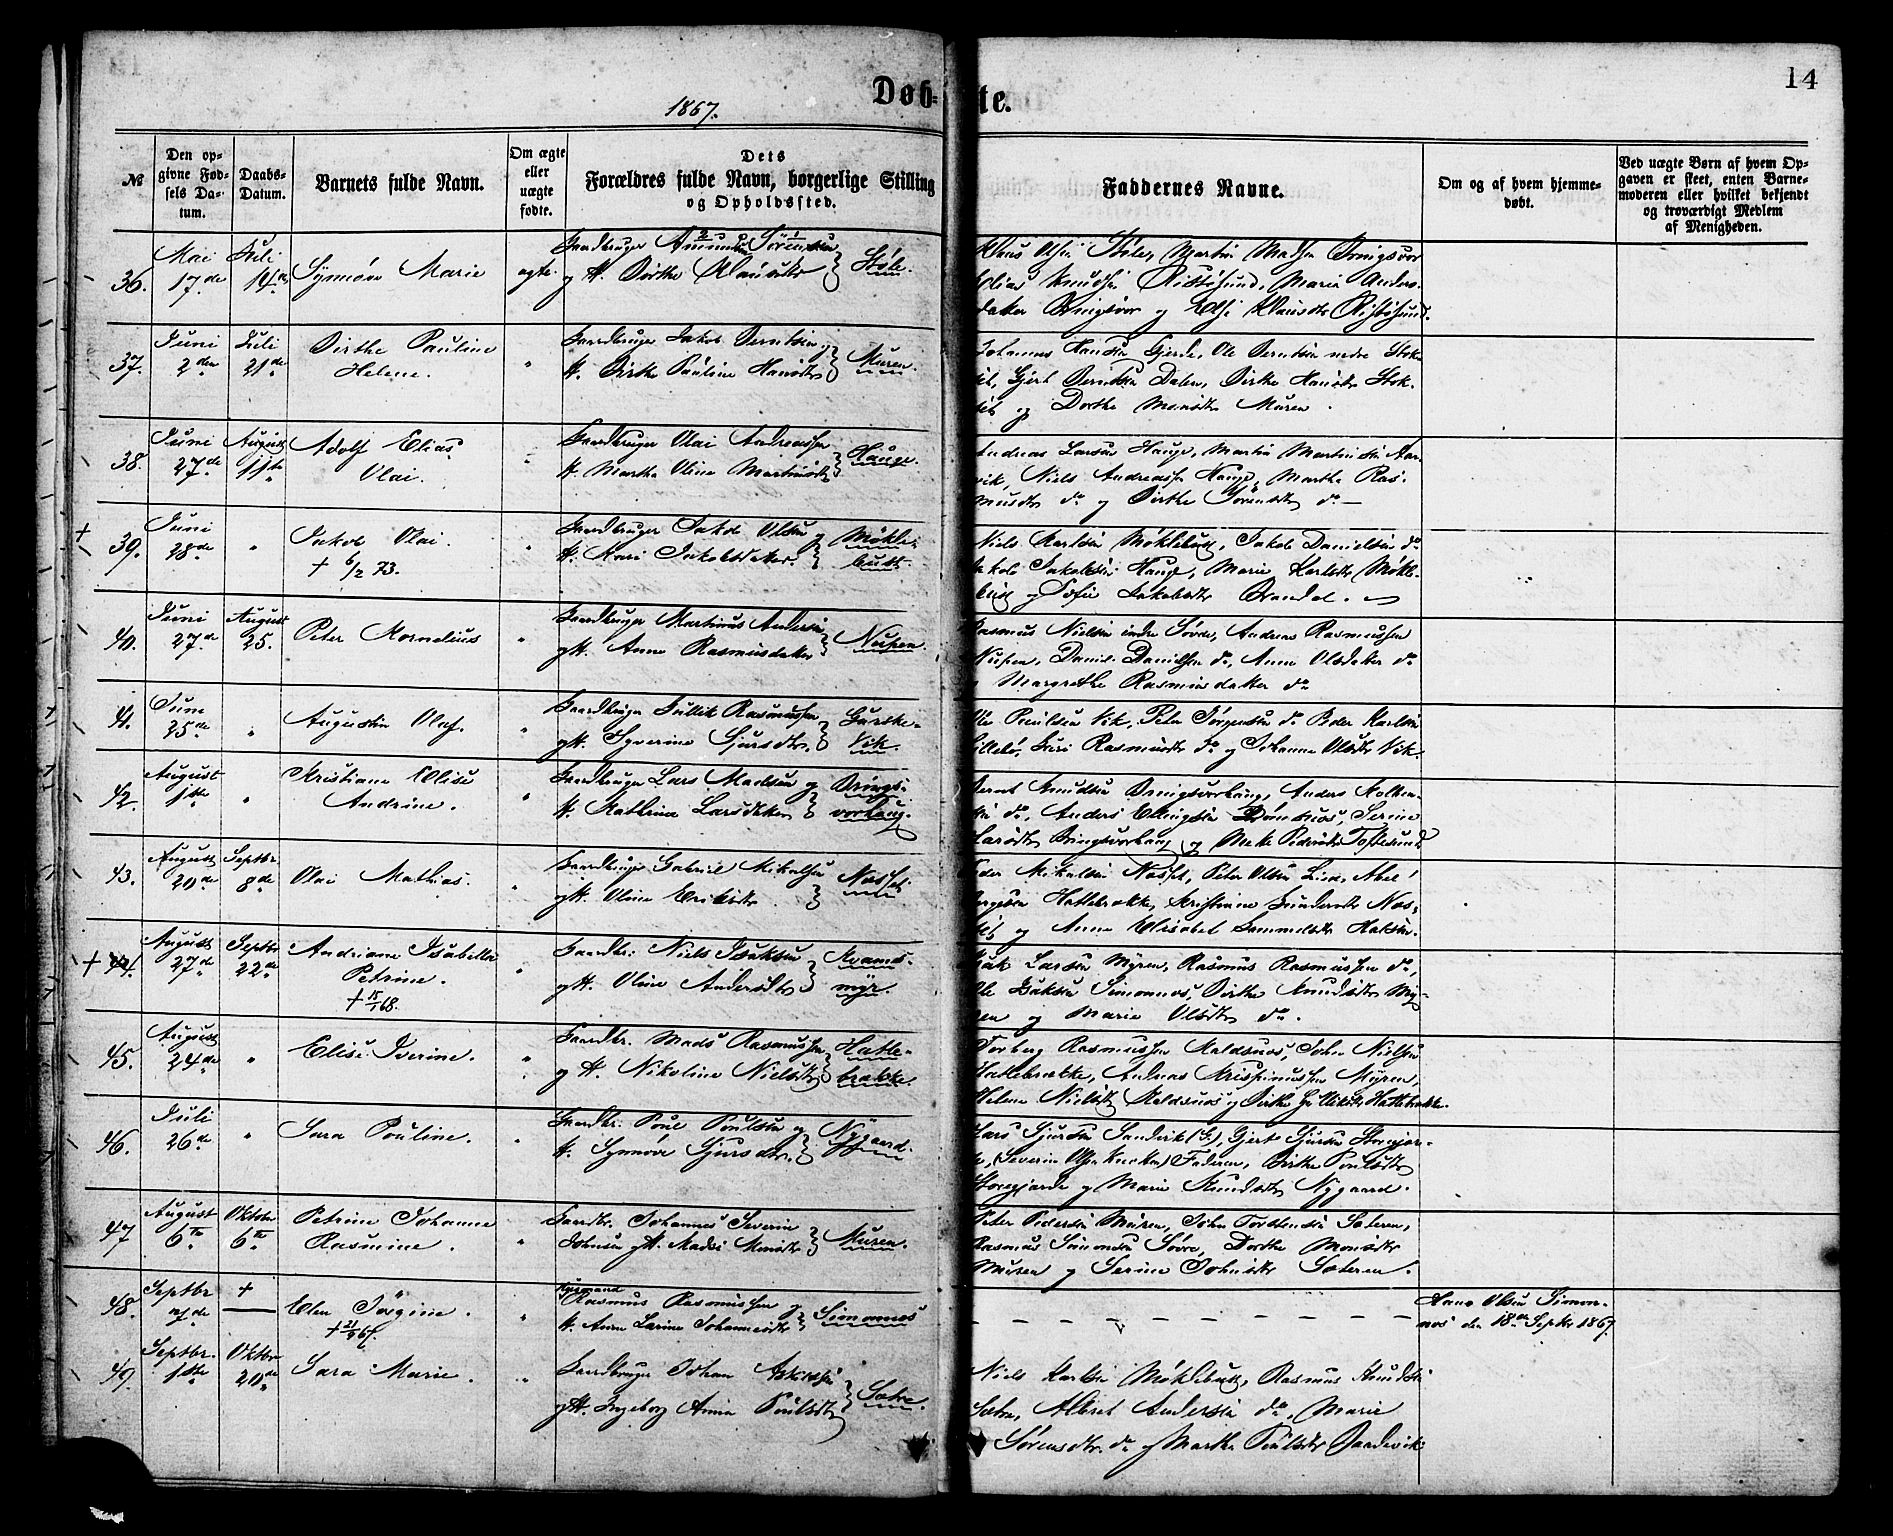 14
1867.
Døbte.
№
Den opgivne Fødsels Datum.
Daabs-Datum.
Barnets fulde Navn.
Om ægte eller uægte fødte.
Dets Forældres fulde Navn, borgerlige Stilling og Opholdssted.
Faddernes Navne.
Om og af hvem hjemmedøbt.
Ved uægte Børn af hvem Opgaven er skeet, enten Barnemoderen eller hvilket bekjendt og troværdigt Medlem af Menigheden.
36. Mai 17de Juli 14de Synnøve Marie ægte.
Gaardbruger Amund Sörensen
og H. Birthe Klausdtr Støle.
Klaus Olsen Støle, Martin Madsen Bringsvor
Elias Knudsen Riststøsund, Marie Anders-
datter Bringsvor og Elsi Klausdtr
37. Juni 2den Juli 21de Birthe Pauline
Helene.
Gaardbruger Jakob Berntsen og
H. Birthe Pauline Hansdtr Muren.
Johannes Hansen Gjerde, Ole Berntsen nedre Stok-
set, Gjert Berntsen Dalen, Birthe Hansdtr Stok-
set og Dorthe Monsdtr Muren.
38. Juni 27de August 11te Adolf Elias
Olai.
Gaardbruger Olai Andreassen
H. Marthe Oline Martinsdtr Hauge.
Andreas Larsen Hauge, Martin Martinsen Aar-
vik, Niels Andreassen Hauge, Marthe Ras-
musdtr do og Birthe Sörensdtr do
39. Juni 28de " Jakob Olai.
+ 6/2 73.
Gaardbruger Jakob Olsen og
H. Kari Jakobsdatter. Møkle-
bust.
Niels Karlsen Møklebust, Jakob Danielsen do
Jakob Jakobsen Hauge, Marie Karlsdtr Møkle-
bust og Sofie Jakobsdtr Brandal.
40. Juni 27de August 25. Peter Kornelius "
Gaardbruger Martinus Andersen
og H. Anne Rasmusdatter Nupen.
Rasmus Nielsen indre Søvde, Andreas Rasmussen
Nupen, Daniel Danielsen do, Anne Olsdatter do
og Margrethe Rasmusdatter do
41. Juni 25de " Augustin Olaf. "
Gaardbruger Gullik Rasmussen
og H. Syverine Sjursdtr. Gurske-
vik.
Ole Poulsen Vik, Peter Jørgensen do Peder Karlsen
Lillebø, Guri Rasmusdtr do og Johanne Olsdtr Vik.
42. August 1ste " Kristiane Elise
Andrine. "
Gaardbruger Lars Madsen og
H. Kathrine Larsdatter Brings-
vorhaug.
Bernt Knudsen Bringsvorhaug, Anders
do, Anders Ellingsen Serine
Larsdtr Bringsvorhaug og Pedersdtr Toftesund
43. August 20de Septbr. 8de Olai Mathias. "
Gaardbruger Gabriel Mikalsen
og H. Oline Eriksdtr. Nosset.
Peder Mikalsen Nosset, Peter Olsen Lied, Abel
Hattebrække, Kristiane Gundersdtr Nos-
set og Anne Elisabet
44. August 27de Septbr 22de Andriane Isabella
Petrine.
+ 15/1 68.
Gaardbr. Niels Isaksen
og H. Oline Andersdtr Kvams-
myr.
Isak Larsen Myren, Rasmus Rasmussen do,
Ole Isaksen Simonnes, Birthe Knudsdtr My-
ren og Marie Olsdtr do.
45. August 24de " Elise Iverine. "
Gaardbr. Mads Rasmussen
og H. Nikoline Nielsdtr Hatle-
brække.
Torberg Rasmussen Koldsnes, John Nielsen
Hatlebrække, Andreas Krispinussen Myren,
Helene Nielsdtr Koldsnes og Birthe Hatlebrække.
46. Juli 26de " Sara Pouline. "
Gaardbr. Poul Poulsen og
H. Synnøve Sjursdtr. Nygaard.
Lars Sjursen Sandvik (S.), Gjert Sjursen Storegjer-
de, (Severin Olsen Knotten) Faderen, Birthe Poulsdtr
Storegjerde og Marie Knudsdtr Nygaard.
47 August 6te Oktober 6te Petrine Johanne
Rasmine. "
Gaardbr. Johannes Severin
Johnsen og H. Madsi Monsdtr Muren.
Peter Pedersen Muren, John Torstensen Sæteren,
Rasmus Simonsen Søvde, Dorthe Monsdtr
Muren og Serine Johnsdtr Sæteren.
48. Septbr 7de + Elen Jörgine.
+ 21/9 67. "
Huusmand
Rasmus Rasmussen og
H. Anne Larine Johannesdtr Simonnes
Hans Olsen Simon-
nes den 18de Septbr 1867.
49. Septbr. 1ste Oktbr 20de Sara Marie. "
Gaardbruger Johan Askildsen
og H. Ingeborg Anna Poulsdtr Sætre.
Niels Karlsen Møklebust, Rasmus Knudsen
Sætre, Albret Andersen do, Marie
Sörensdtr. do og Marthe Poulsdtr Saudevik